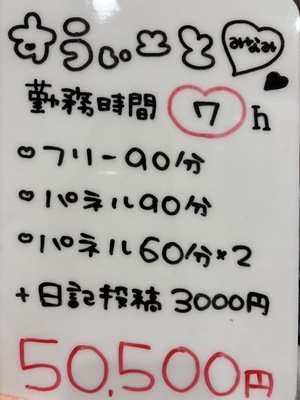 おうぃっと みなみ
勤務時間 7 h
フリー90分
パネル90分
パネル60分×2
+日記投稿 3000円
50,500円